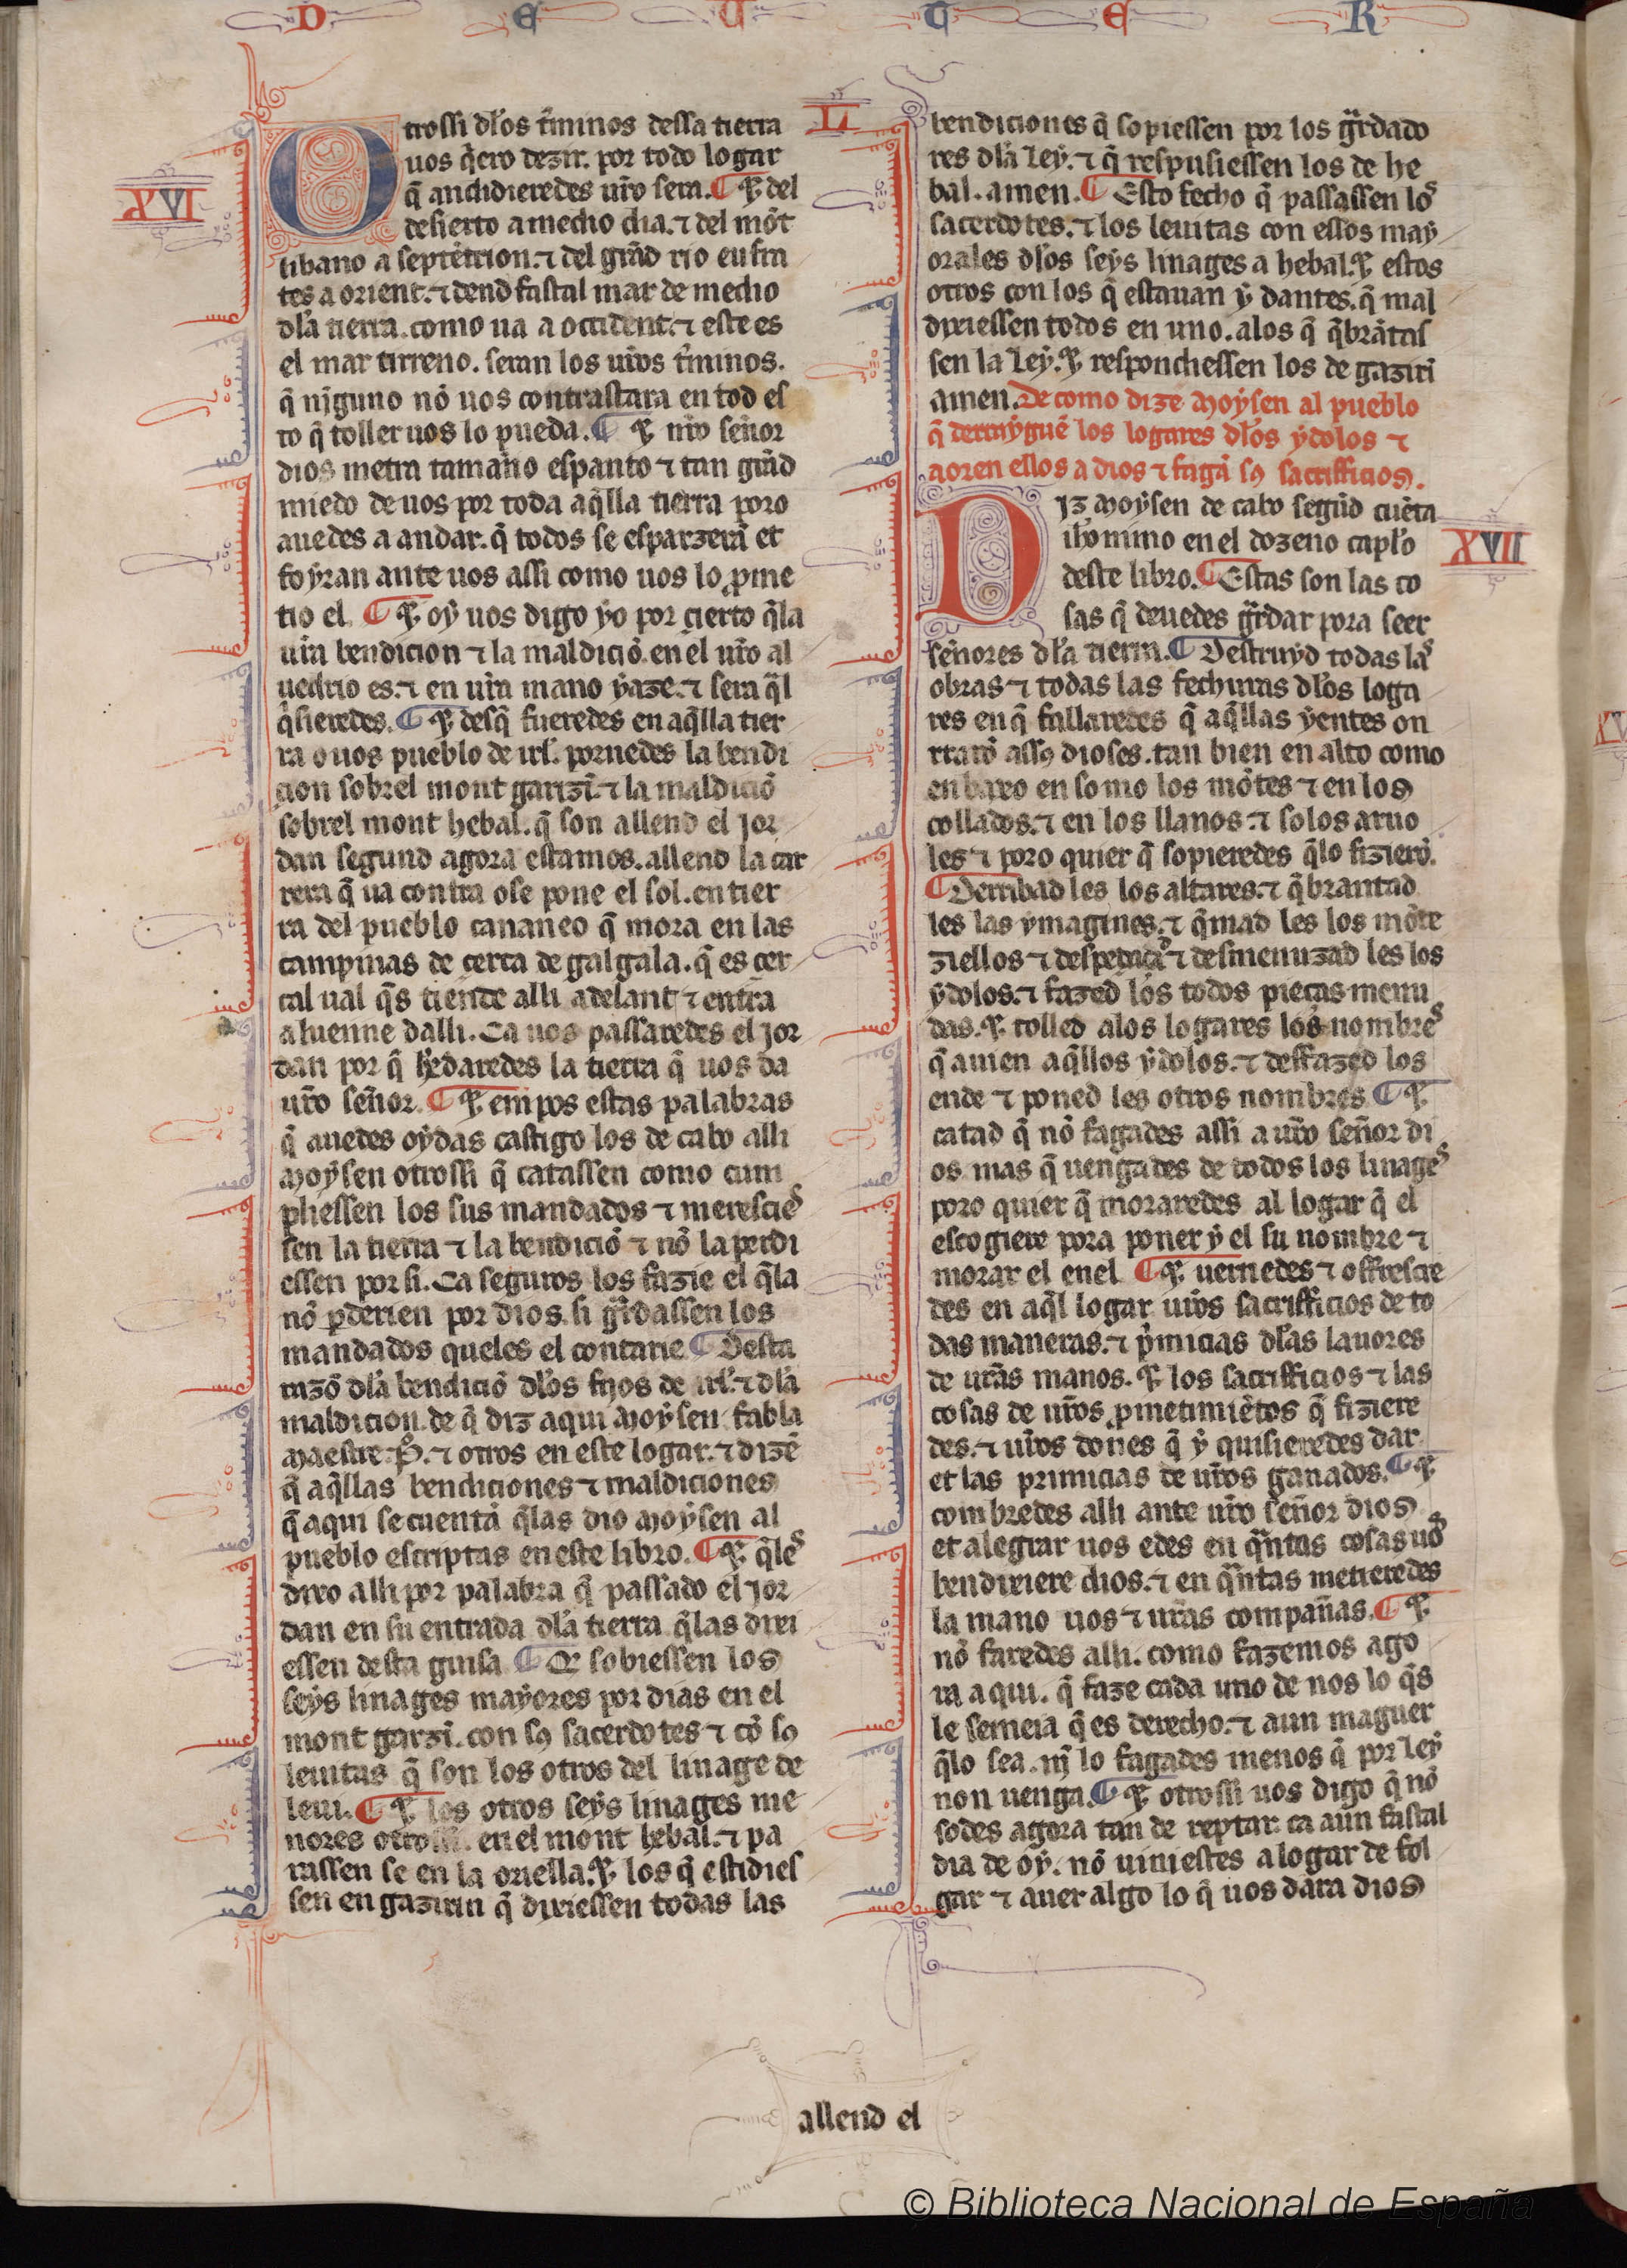 D E U T E R
XVI
Otrossi dłos t̃minos dessa tierra
uos q̃ero dezir. por todo logar
q̃ andidieredes ur̃o sera. ¶ ⁊ del
desierto a medio dia. ⁊ del mōt
libano a septētrion. ⁊ del grãd rio eufra
tes a orient. ⁊ dend fastal mar de medio
dła tierra. como ua a occident. ⁊ este es
el mar tirreno. seran los ur̃os t̃minos.
q̃ nĩguno nō uos contrastara en tod es
to q̃ toller uos lo pueda. ¶ ⁊ nr̃o señor
dios metra tamaño espanto ⁊ tan grãd
miedo de uos por toda aq̃lla tierra poro
auedes a andar. q̃ todos se esparzerã et
foyran ante uos assi como uos lo ꝓme
tio el. ¶ ⁊ oy uos digo yo por cierto q̃la
ur̃a bendicion ⁊ la maldiciō. en el ur̃o al
uedrio es. ⁊ en ur̃a mano yaze. ⁊ sera q̃l
q̃sieredes. ¶ ⁊ desq̃ fueredes en aq̃lla tier
ra o uos pueblo de irł. pornedes la bendi
cion sobrel mont garizĩ. ⁊ la maldiciō
sobrel mont hebal. q̃ son allend el Jor
dan segund agora estamos. allend la car
rera q̃ ua contra o se pone el sol. en tier
ra del pueblo cananeo q̃ mora en las
campinas de cerca de galgala. q̃ es cer
cal ual q̃s tiende alli adelant ⁊ entra
a luenne dalli. Ca uos passaredes el Jor
dan por q̃ h̃edaredes la tierra q̃ uos da
ur̃o señor. ¶ ⁊ empos estas palabras
q̃ auedes oydas castigo los de cabo alli
Moysen otrossi q̃ catassen como cum
pliessen los sus mandados ⁊ meresciẽs
sen la tierra ⁊ la bendiciō ⁊ nō la perdi
essen por si. Ca seguros los fazie el q̃la
nō ꝑderien por dios. si gr̃dassen los
mandados queles el contarie. ¶ Desta
razō dła bendiciō dłos fijos de irł. ⁊ dła
maldicion. de q̃ diz aqui Moysen. fabla
Maestre .P̊. ⁊ otros en este logar. ⁊ dizē
q̃ aq̃llas bendiciones ⁊ maldiciones
q̃ aqui se cuentã q̃las dio Moysen al
pueblo escriptas en este libro. ¶ ⁊ q̃les
dixo alli por palabra q̃ passado el Jor
dan en su entrada dła tierra q̃las dixi
essen desta guisa. ¶ Q̃ sobiessen los
seys linages mayores por dias en el
mont garzĩ. con sꝯ sacerdotes ⁊ cō sꝯ
leuitas q̃ son los otros del linage de
leui. ¶ ⁊ los otros seys linages me
nores otrossi. en el mont hebal. ⁊ pa
rassen se en la oriella. ⁊ los q̃ estidies
sen en gazirin q̃ dixiessen todas las
L
bendiciones q̃ sopiessen por los gr̃dado
res dła ley. ⁊ q̃ respusiessen los de he
bal. amen. ¶ Esto fecho q̃ passassen los
sacerdotes. ⁊ los leuitas con ellos may
orales dłos seys linages a hebal. ⁊ estos
otros con los q̃ estauan y dantes. q̃ mal
dixiessen todos en uno. a los q̃ q̃brãtas
sen la ley. ⁊ respondiessen los de gaziri
amen. De como dize Moysen al pueblo
q̃ derraygue los logares dłos ydolos ⁊
aoren ellos a dios ⁊ fagã sꝯ sacrifficios.
XVII
Diz Moysen de cabo segūd cuēta
iħonimo en el dozeno capło
deste libro. ¶ Estas son las co
sas q̃ deuedes gr̃dar pora seer
señores dła tierra. ¶ Destruyd todas las
obras ⁊ todas las fechuras dłos loga
res en q̃ fallaredes q̃ aq̃llas yentes on
rrarō a sꝯ dioses. tan bien en alto como
en baxo en somo los mōtes ⁊ en los
collados. ⁊ en los llanos. ⁊ solos aruo
les ⁊ poro quier q̃ sopieredes q̃lo fizierō.
¶ Derribad les los altares. ⁊ q̃brantad
les las ymagines. ⁊ q̃mad les los mōte
ziellos ⁊ despedaçad ⁊ desmenuzad les los
ydolos. ⁊ fazed los todos pieças menu
das. ⁊ tolled a los logares los nombres
q̃ auien aq̃llos ydolos. ⁊ desfazed los
ende ⁊ poned les otros nombres. ¶ ⁊
catad q̃ nō fagades assi a ur̃o señor di
os. mas q̃ uengades de todos los linages
poro quier q̃ moraredes al logar q̃ el
escogiere pora poner y el su nombre ⁊
morar el en el. ¶ ⁊ uernedes ⁊ offrescre
des en aq̃l logar ur̃os sacrifficios de to
das maneras. ⁊ p̃micias dłas lauores
de ur̃as manos. ⁊ los sacrifficios ⁊ las
cosas de ur̃os ꝓmetimiētos q̃ fiziere
des. ⁊ ur̃os dones q̃ y quisieredes dar.
et las primicias de ur̃os ganados. ¶ ⁊
combredes alli ante ur̃o señor dios.
et alegrar uos edes en q̃ntas cosas uos
bendixiere dios. ⁊ en q̃ntas metieredes
la mano uos ⁊ ur̃as compañas. ¶ ⁊
nō faredes alli. como fazemos ago
ra aqui. q̃ faze cada uno de nos lo q̃s
le semeia q̃ es derecho. ⁊ aun maguer
q̃lo sea. nĩ lo fagades menos q̃ por ley
non uenga. ¶ ⁊ otrossi uos digo q̃ nō
sodes agora tan de reptar. ca aun fastal
dia de oy. nō uiniestes a logar de fol
gar ⁊ auer algo lo q̃ uos dara dios
allend el
© Biblioteca Nacional de España